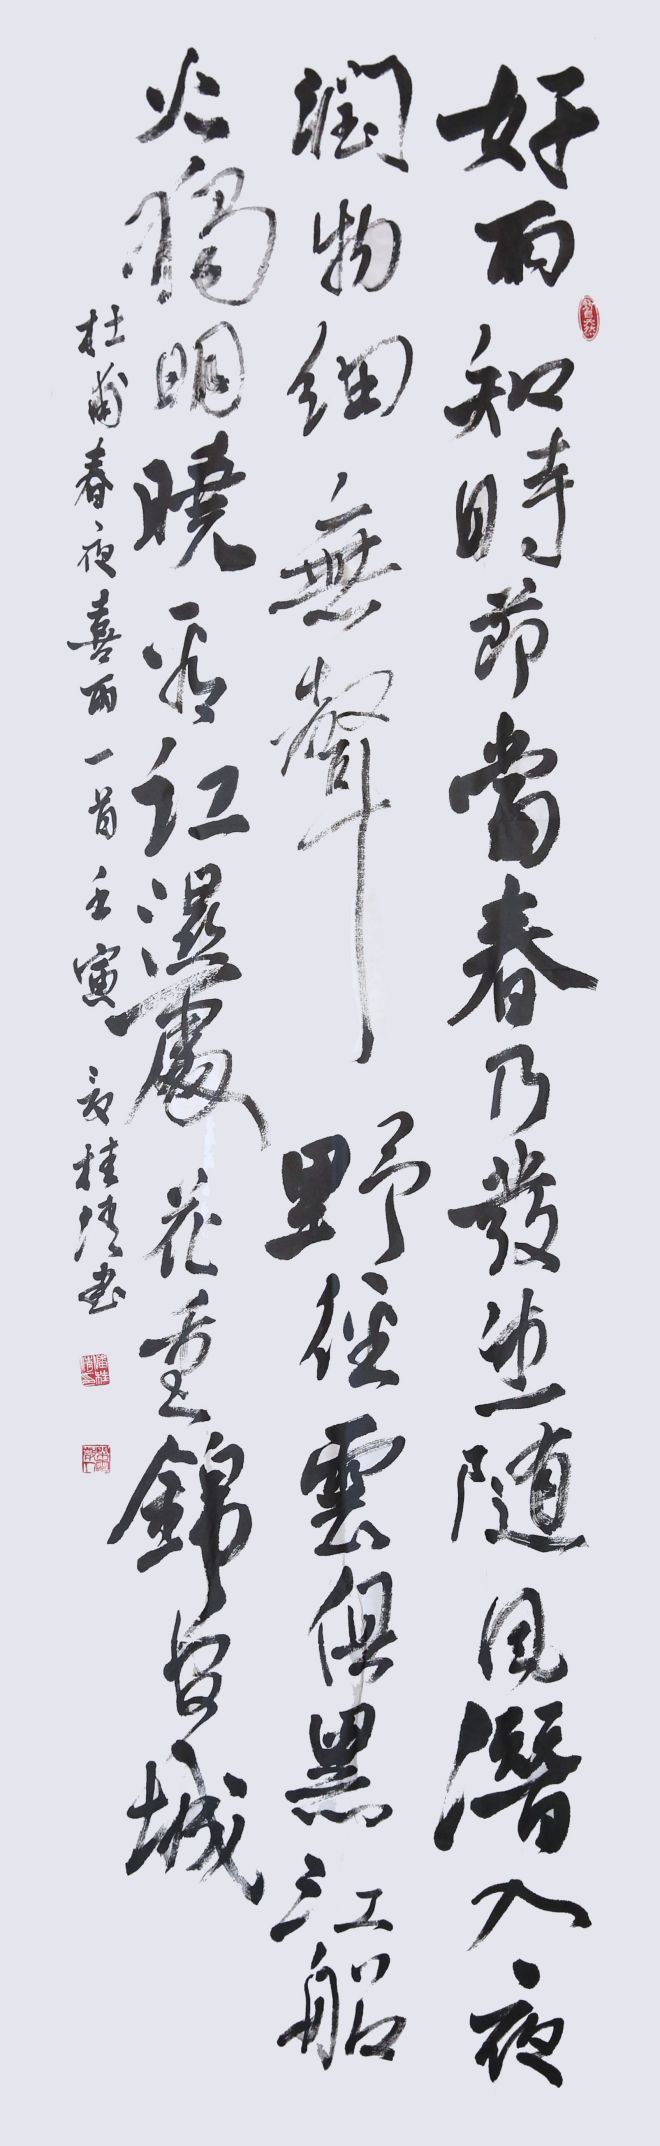 好雨知時節當春乃發生随風潛入夜
潤物細無聲野徑雲俱黑江船
火獨明曉看紅濕處花重錦官城
杜甫春夜喜雨一首壬寅夏桂清书